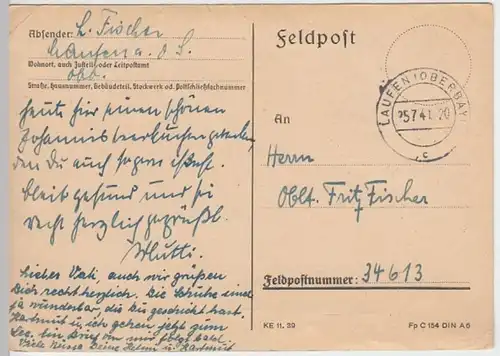 Absender: L. Fischer
Laufen a. d. S.
Wohnort, auch Zustell- oder Leitpostamt
Obb.
Straße, Hausnummer, Gebäudeteil, Stockwerk od. Postschließfachnummer
heute hier einen schönen
den Du auch sogern
bleib gesund und sei
recht herzlich gegrüßt.
Mutti.
Lieber Vati auch wir grüßen
Dich recht herzlich. Die Schuhe sind
ja wunderbar, die Du geschickt hast.
Hartmut u. ich gehen jetzt zum
See. Ein Brief von mir folgt bald.
Viele Deine u. Hartmut
Feldpost
LAUFEN (OBERBAY)
25.7.41. 20
c
An
Herrn
Oblt. Fritz Fischer
Feldpostnummer: 34613
KE 11. 39
Fp C 154 DIN A 6